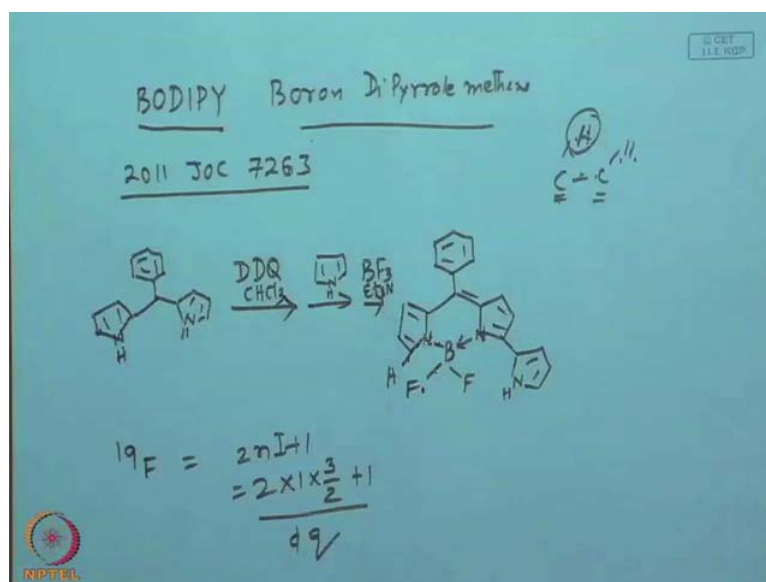 © CET
I.I.T. KGP
BODIPY Boron DiPyrrole methene
2011 JOC 7263
H
C - C
DDQ
CHCl3
N
H
BF3
Et3N
N
H
N
H
N
N
B
H
F
F
H
N
19F = 2nI+1
= 2 × 1 × 3/2 + 1
dq
NPTEL